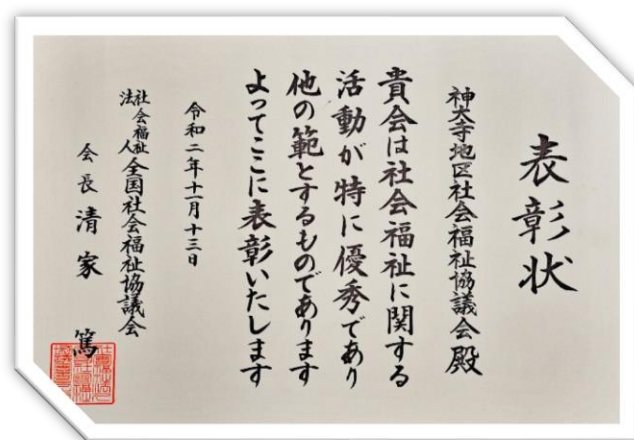 表彰状
神大寺地区社会福祉協議会殿
貴会は社会福祉に関する
活動が特に優秀であり
他の範とするものであります
よってここに表彰いたします
令和二年十一月十三日
社会福祉法人全国社会福祉協議会
会長 清家 篤